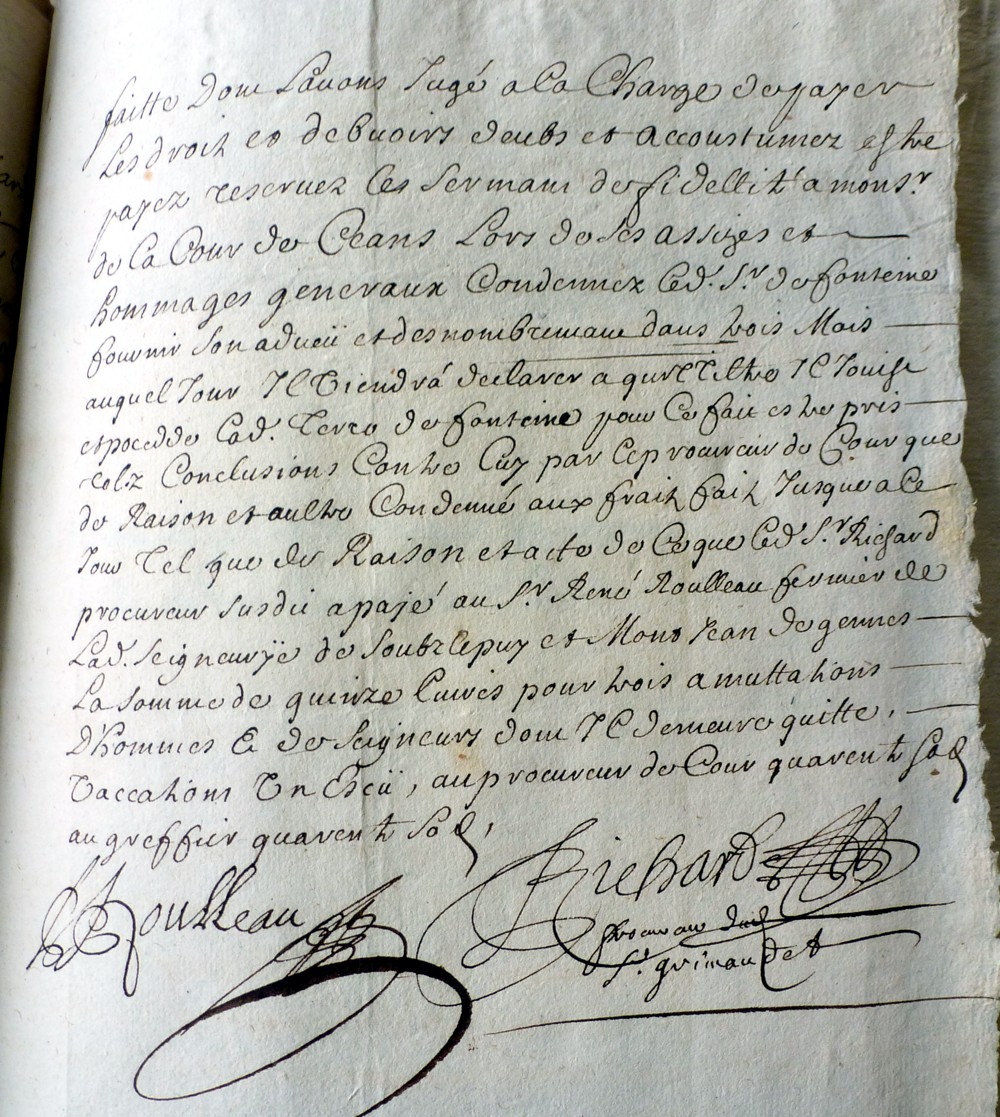 faitte Dont Lavons Jugé a la Charge de payer
Les droit et debvoirs deubs et accoustumez estre
payez reservez les sermant de fidellité a monsr
de la Cour de Ceans Lors de ses assizes et
hommages generaux Condennez led. Sr. de fonteine
fournir son adveü et desnombremant dans trois Mois
auquel Jour Il Viendrá declarer a quel Tiltre Il Jouist
et possedde lad. Terre de fonteine pour ce fait estre pris
telz Conclusions Contre luy par le procureur de Cour que
de Raison et aultre Condenné aux fraih fait Jusque a ce
Jour Tel que de Raison et acte de ce que led. Sr. Richard
procureur susdit a pajé au Sr. René Roulleau fermier de
Lad. seigneurÿe de soubz le puy et Mont Jean de gennes
La somme de quinze livres pour trois a muttations
D'hommes & de seigneurs dont Il demeure quitte,
Vaccations Un Escü, au procureur de Cour quarente sols
au greffier quarente sols,
Roulleau
Richard
procureur dud
Sr grimaudet